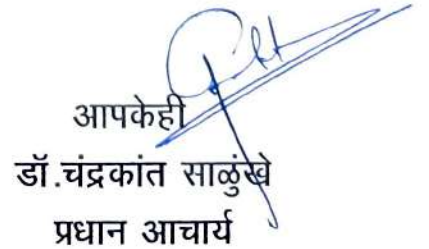 आपकेही
डॉ.चंद्रकांत साळुंखे
प्रधान आचार्य